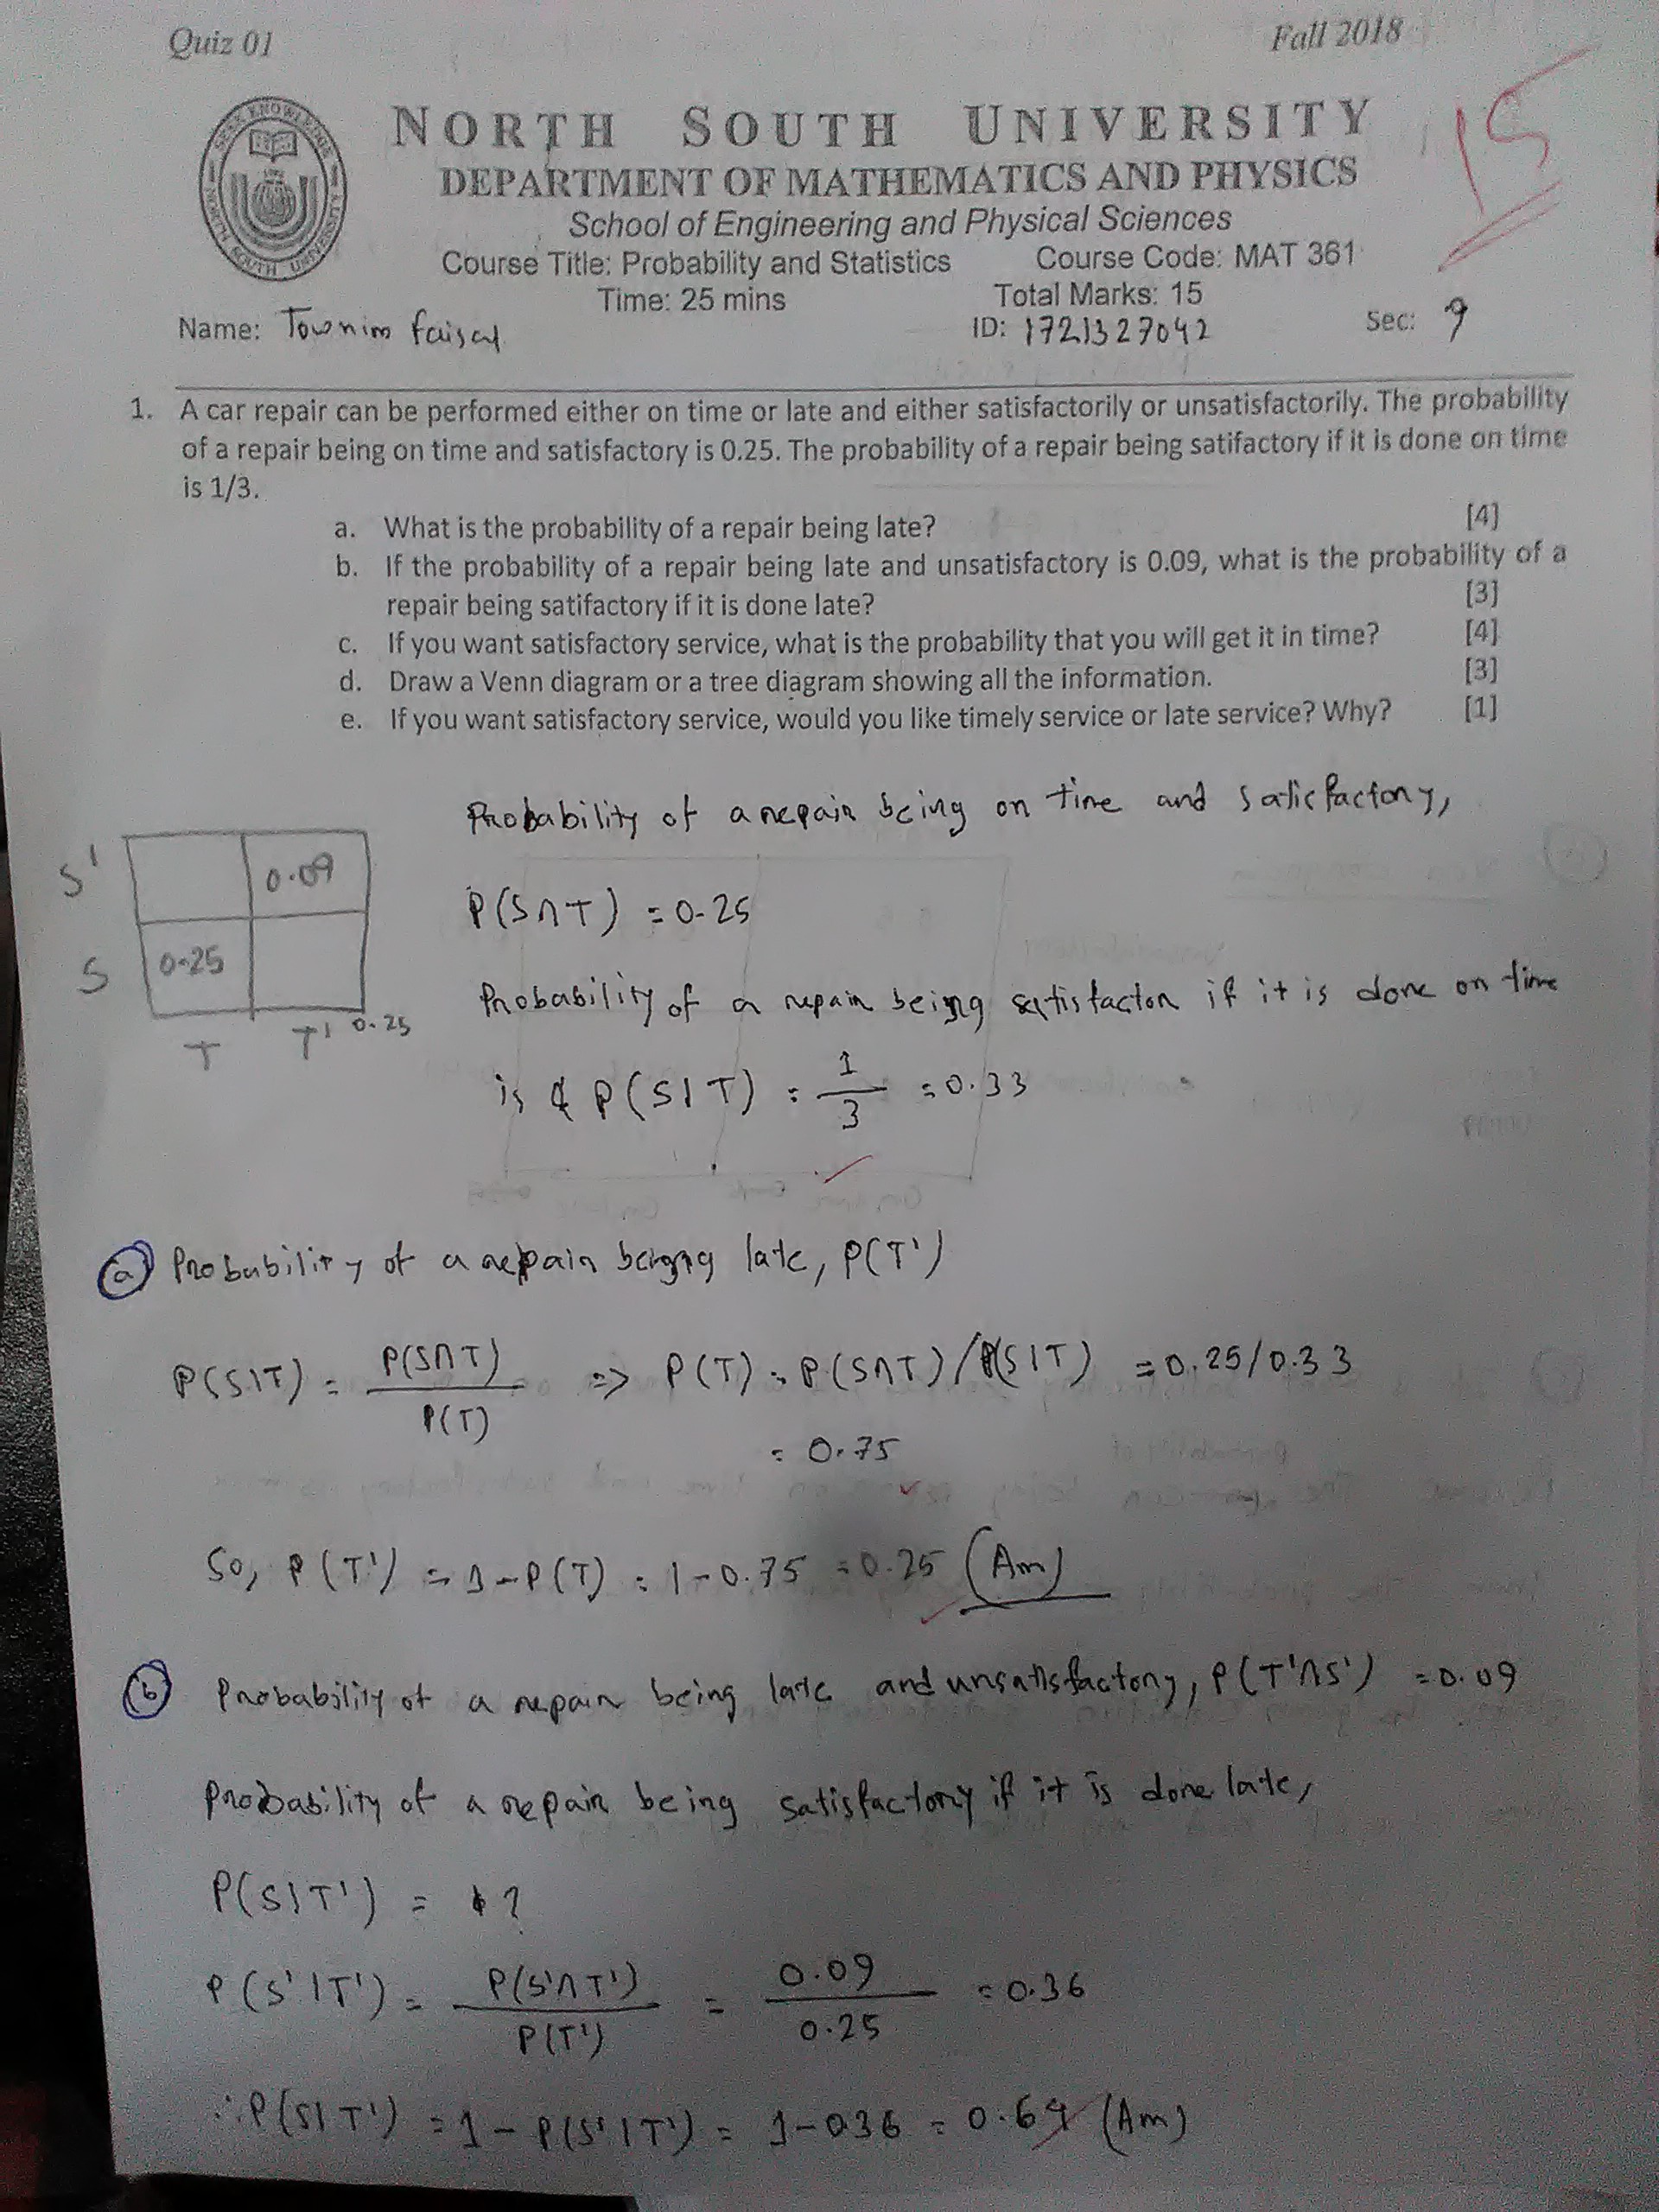 Quiz 01 Fall 2018
15
NORTH SOUTH UNIVERSITY
DEPARTMENT OF MATHEMATICS AND PHYSICS
School of Engineering and Physical Sciences
Course Title: Probability and Statistics Course Code: MAT 361
Time: 25 mins Total Marks: 15
Name: Townim Faisal ID: 1721327042 Sec: 9
1. A car repair can be performed either on time or late and either satisfactorily or unsatisfactorily. The probability
of a repair being on time and satisfactory is 0.25. The probability of a repair being satifactory if it is done on time
is 1/3.
a. What is the probability of a repair being late? [4]
b. If the probability of a repair being late and unsatisfactory is 0.09, what is the probability of a
repair being satifactory if it is done late? [3]
c. If you want satisfactory service, what is the probability that you will get it in time? [4]
d. Draw a Venn diagram or a tree diagram showing all the information. [3]
e. If you want satisfactory service, would you like timely service or late service? Why? [1]
Probability of a repair being on time and satisfactory,
S' 0.09
P(S∩T) = 0.25
S 0.25
Probability of a repair being satisfacton if it is done on time
T T' 0.25
is P(S|T) = 1/3 = 0.33
(a) Probability of a repair being late, P(T')
P(S|T) = P(S∩T)/P(T) => P(T) = P(S∩T)/P(S|T) = 0.25/0.33
= 0.75
So, P(T') = 1-P(T) = 1-0.75 = 0.25 (Am)
(b) Probability of a repair being late and unsatisfactory, P(T'∩S') = 0.09
Probability of a repair being satisfactory if it is done late,
P(S|T') = ?
P(S'|T') = P(S'∩T')/P(T') = 0.09/0.25 = 0.36
∴ P(S|T') = 1 - P(S'|T') = 1-036 = 0.64 (Am)